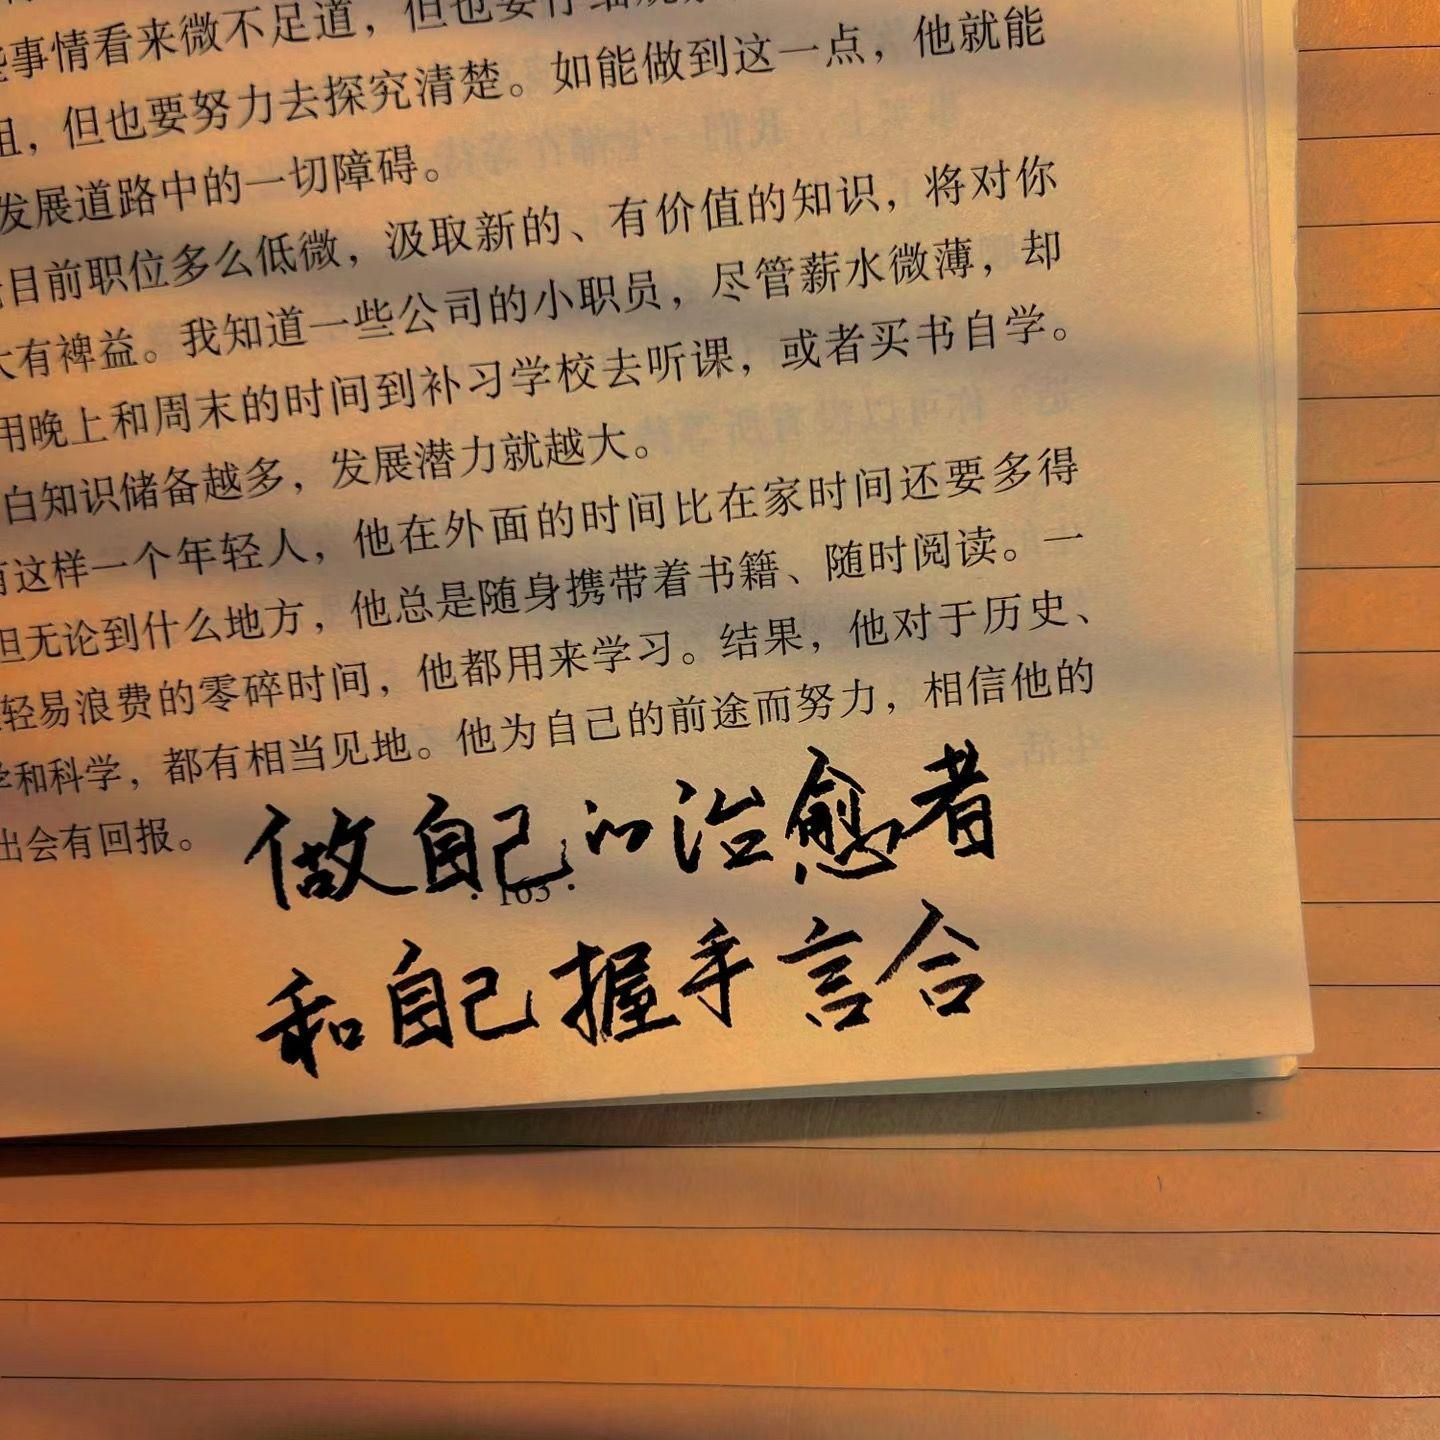 事情看来微不足道，但也要仔细
，但也要努力去探究清楚。如能做到这一点，他就能
发展道路中的一切障碍。
目前职位多么低微，汲取新的、有价值的知识，将对你
大有裨益。我知道一些公司的小职员，尽管薪水微薄，却
用晚上和周末的时间到补习学校去听课，或者买书自学。
白知识储备越多，发展潜力就越大。
有这样一个年轻人，他在外面的时间比在家时间还要多得
但无论到什么地方，他总是随身携带着书籍、随时阅读。一
轻易浪费的零碎时间，他都用来学习。结果，他对于历史、
学和科学，都有相当见地。他为自己的前途而努力，相信他的
出会有回报。
做自己的治愈者
· 165 ·
和自己握手言合